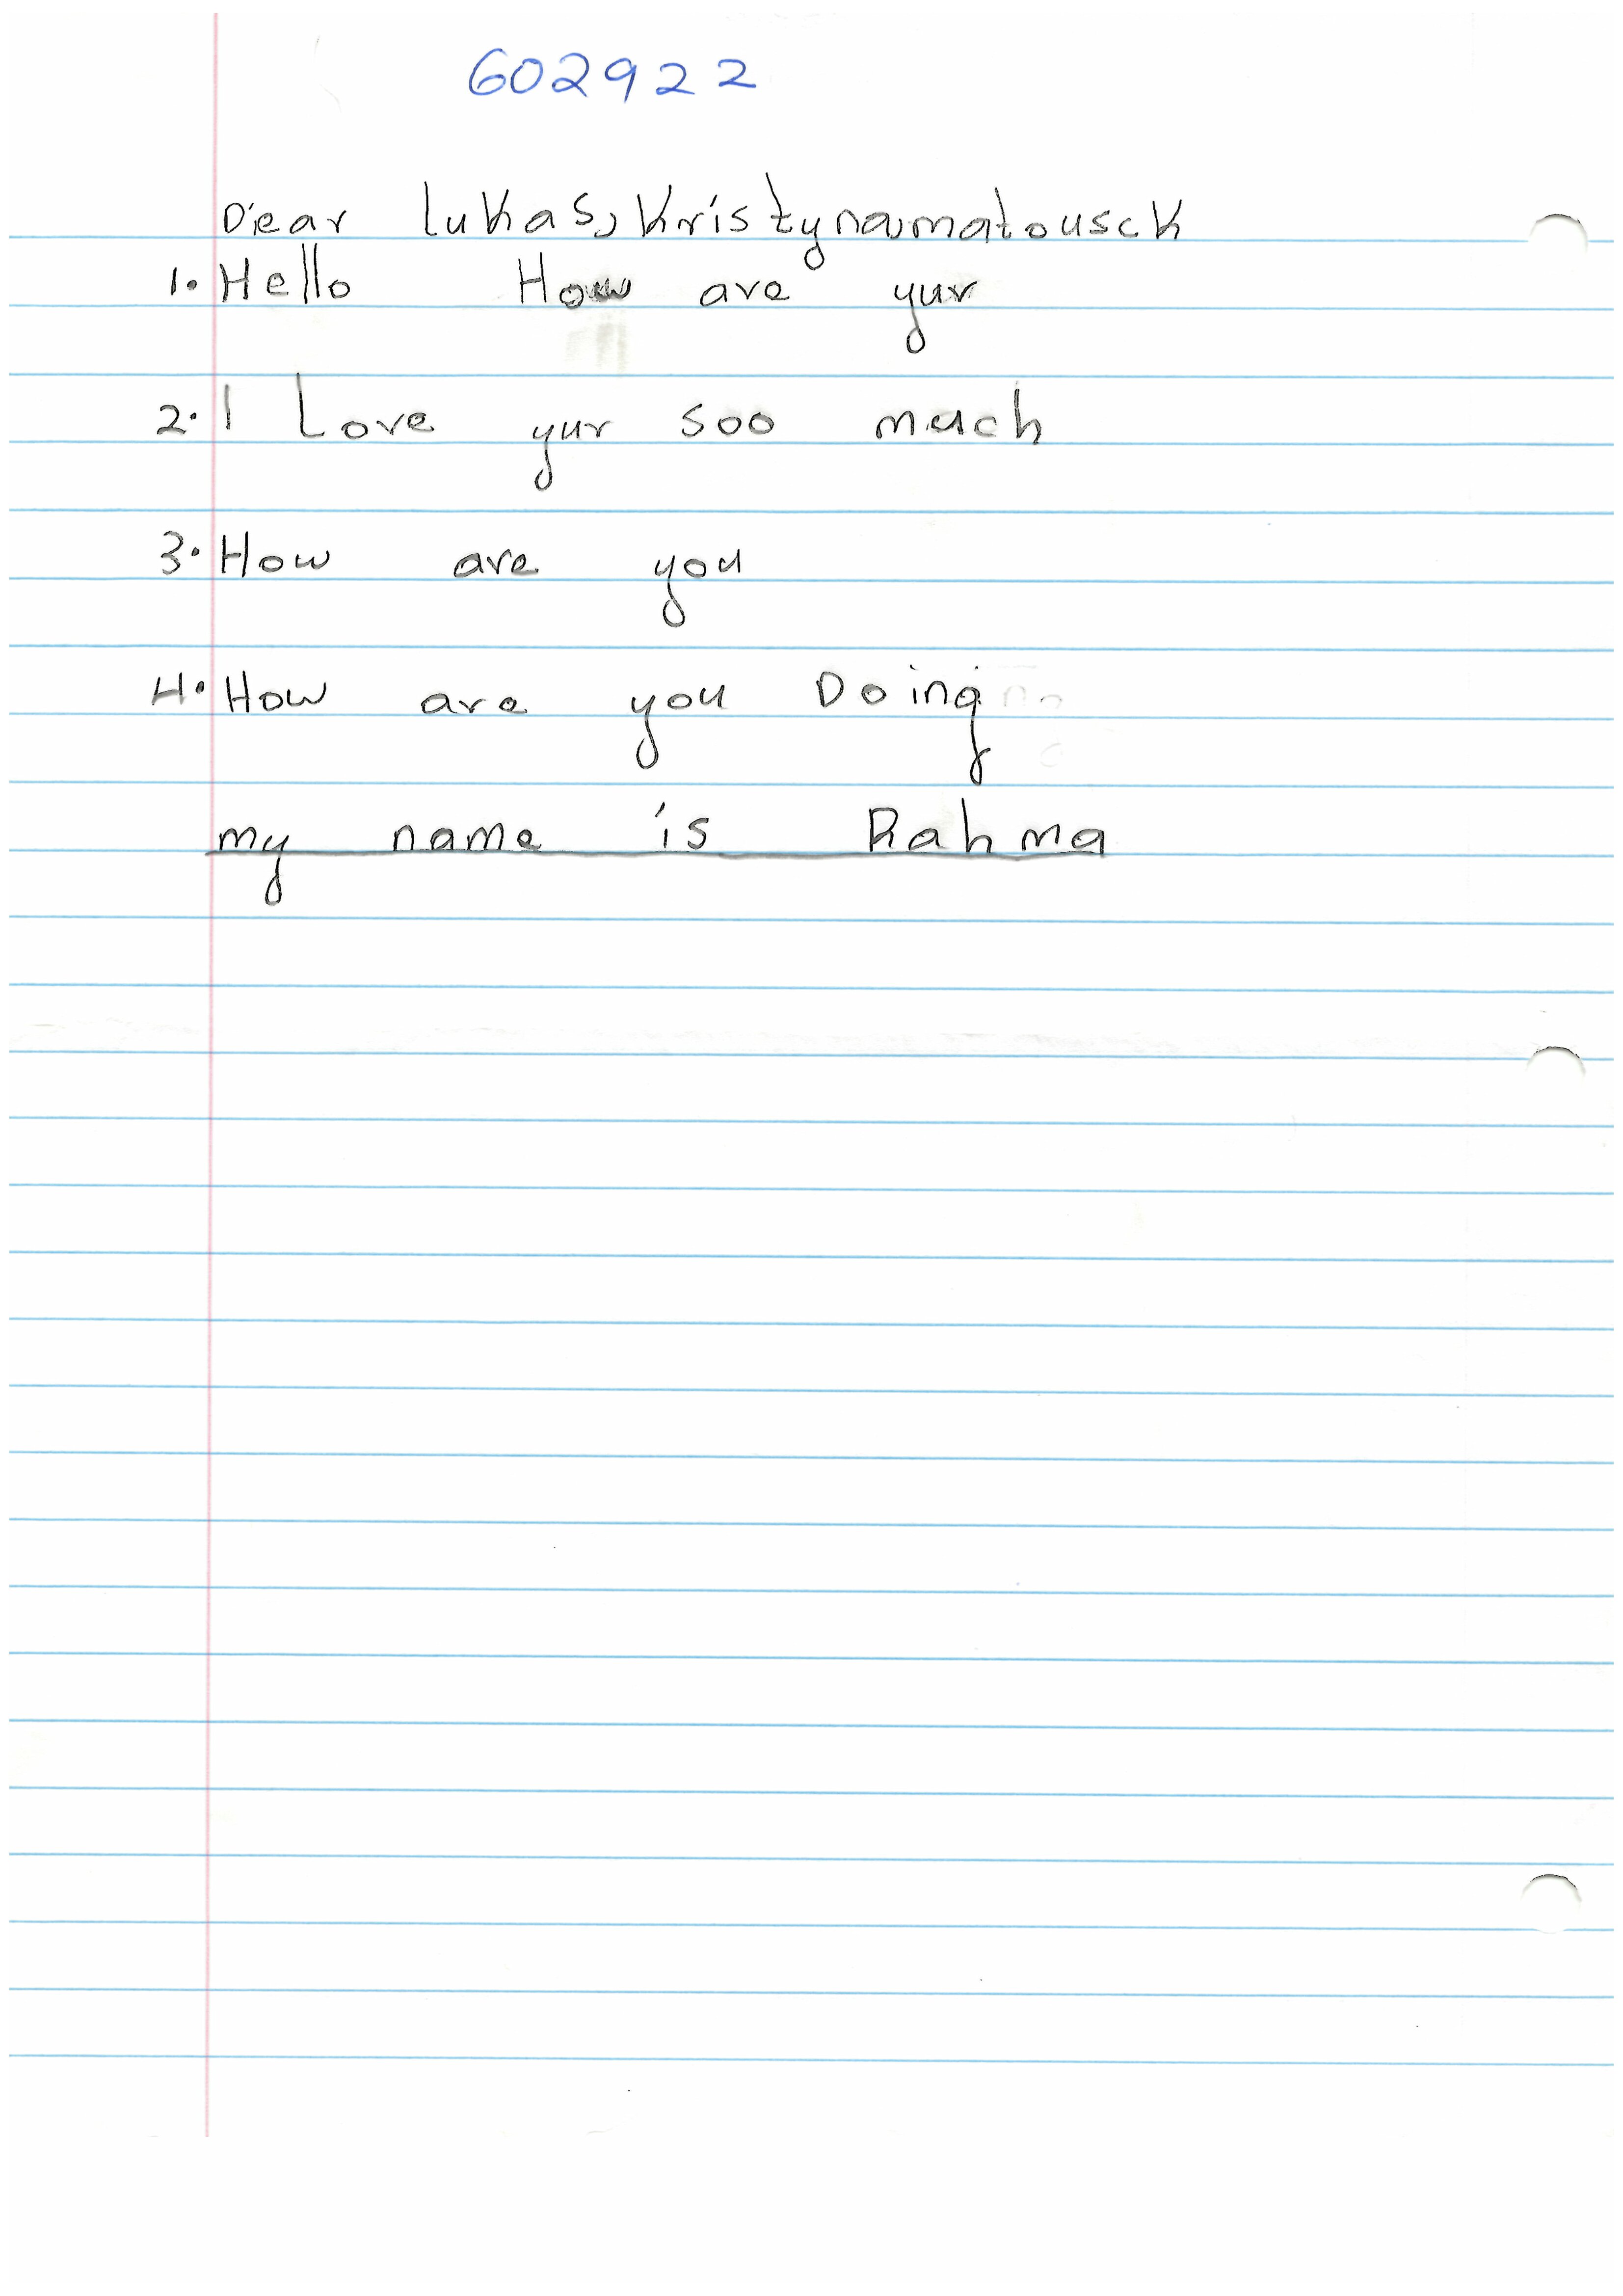 602922
Dear lukas, Kristynamatousck
1. Hello How are yur
2. I Love yur soo much
3. How are you
4. How are you Doing
my name is Rahma